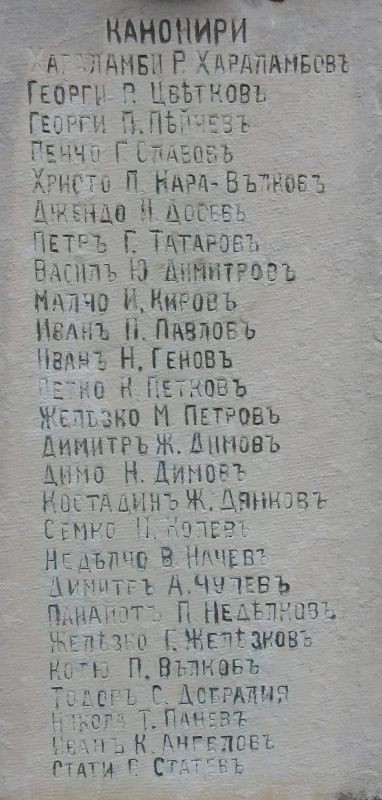 КАНОНИРИ
ХАРАЛАМБИ Р. ХАРАЛАМБОВЪ
ГЕОРГИ Р. ЦВѢТКОВЪ
ГЕОРГИ П. ПѢЙЧЕВЪ
ПЕНЧО Г. СЛАВОВЪ
ХРИСТО П. КАРА-ВЪЛКОВЪ
ДЖЕНДО ДОСЕВЪ
ПЕТРЪ Г. ТАТАРОВЪ
ВАСИЛЪ Ю. ДИМИТРОВЪ
МАЛЧО И. КИРОВЪ
ИВАНЪ П. ПАВЛОВЪ
ИВАНЪ Н. ГЕНОВЪ
ПЕТКО К. ПЕТКОВЪ
ЖЕЛѢЗКО М. ПЕТРОВЪ
ДИМИТРЪ Ж. ДИМОВЪ
ДИМО Н. ДИМОВЪ
КОСТАДИНЪ Ж. ДЯНКОВЪ
СЕМКО КОЛЕВЪ
НЕДѢЛЧО В. НАЧЕВЪ
ДИМИТРЪ А. ЧУЛЕВЪ
ПАНАЙОТЪ П. НЕДѢЛКОВЪ
ЖЕЛѢЗКО Г. ЖЕЛѢЗКОВЪ
КОТЮ П. ВЪЛКОВЪ
ТОДОРЪ С. ДОБРАЛИЯ
НИКОЛА Т. ПАНЕВЪ
ИВАНЪ К. АНГЕЛОВЪ
СТАТИ Г. СТАТЕВЪ